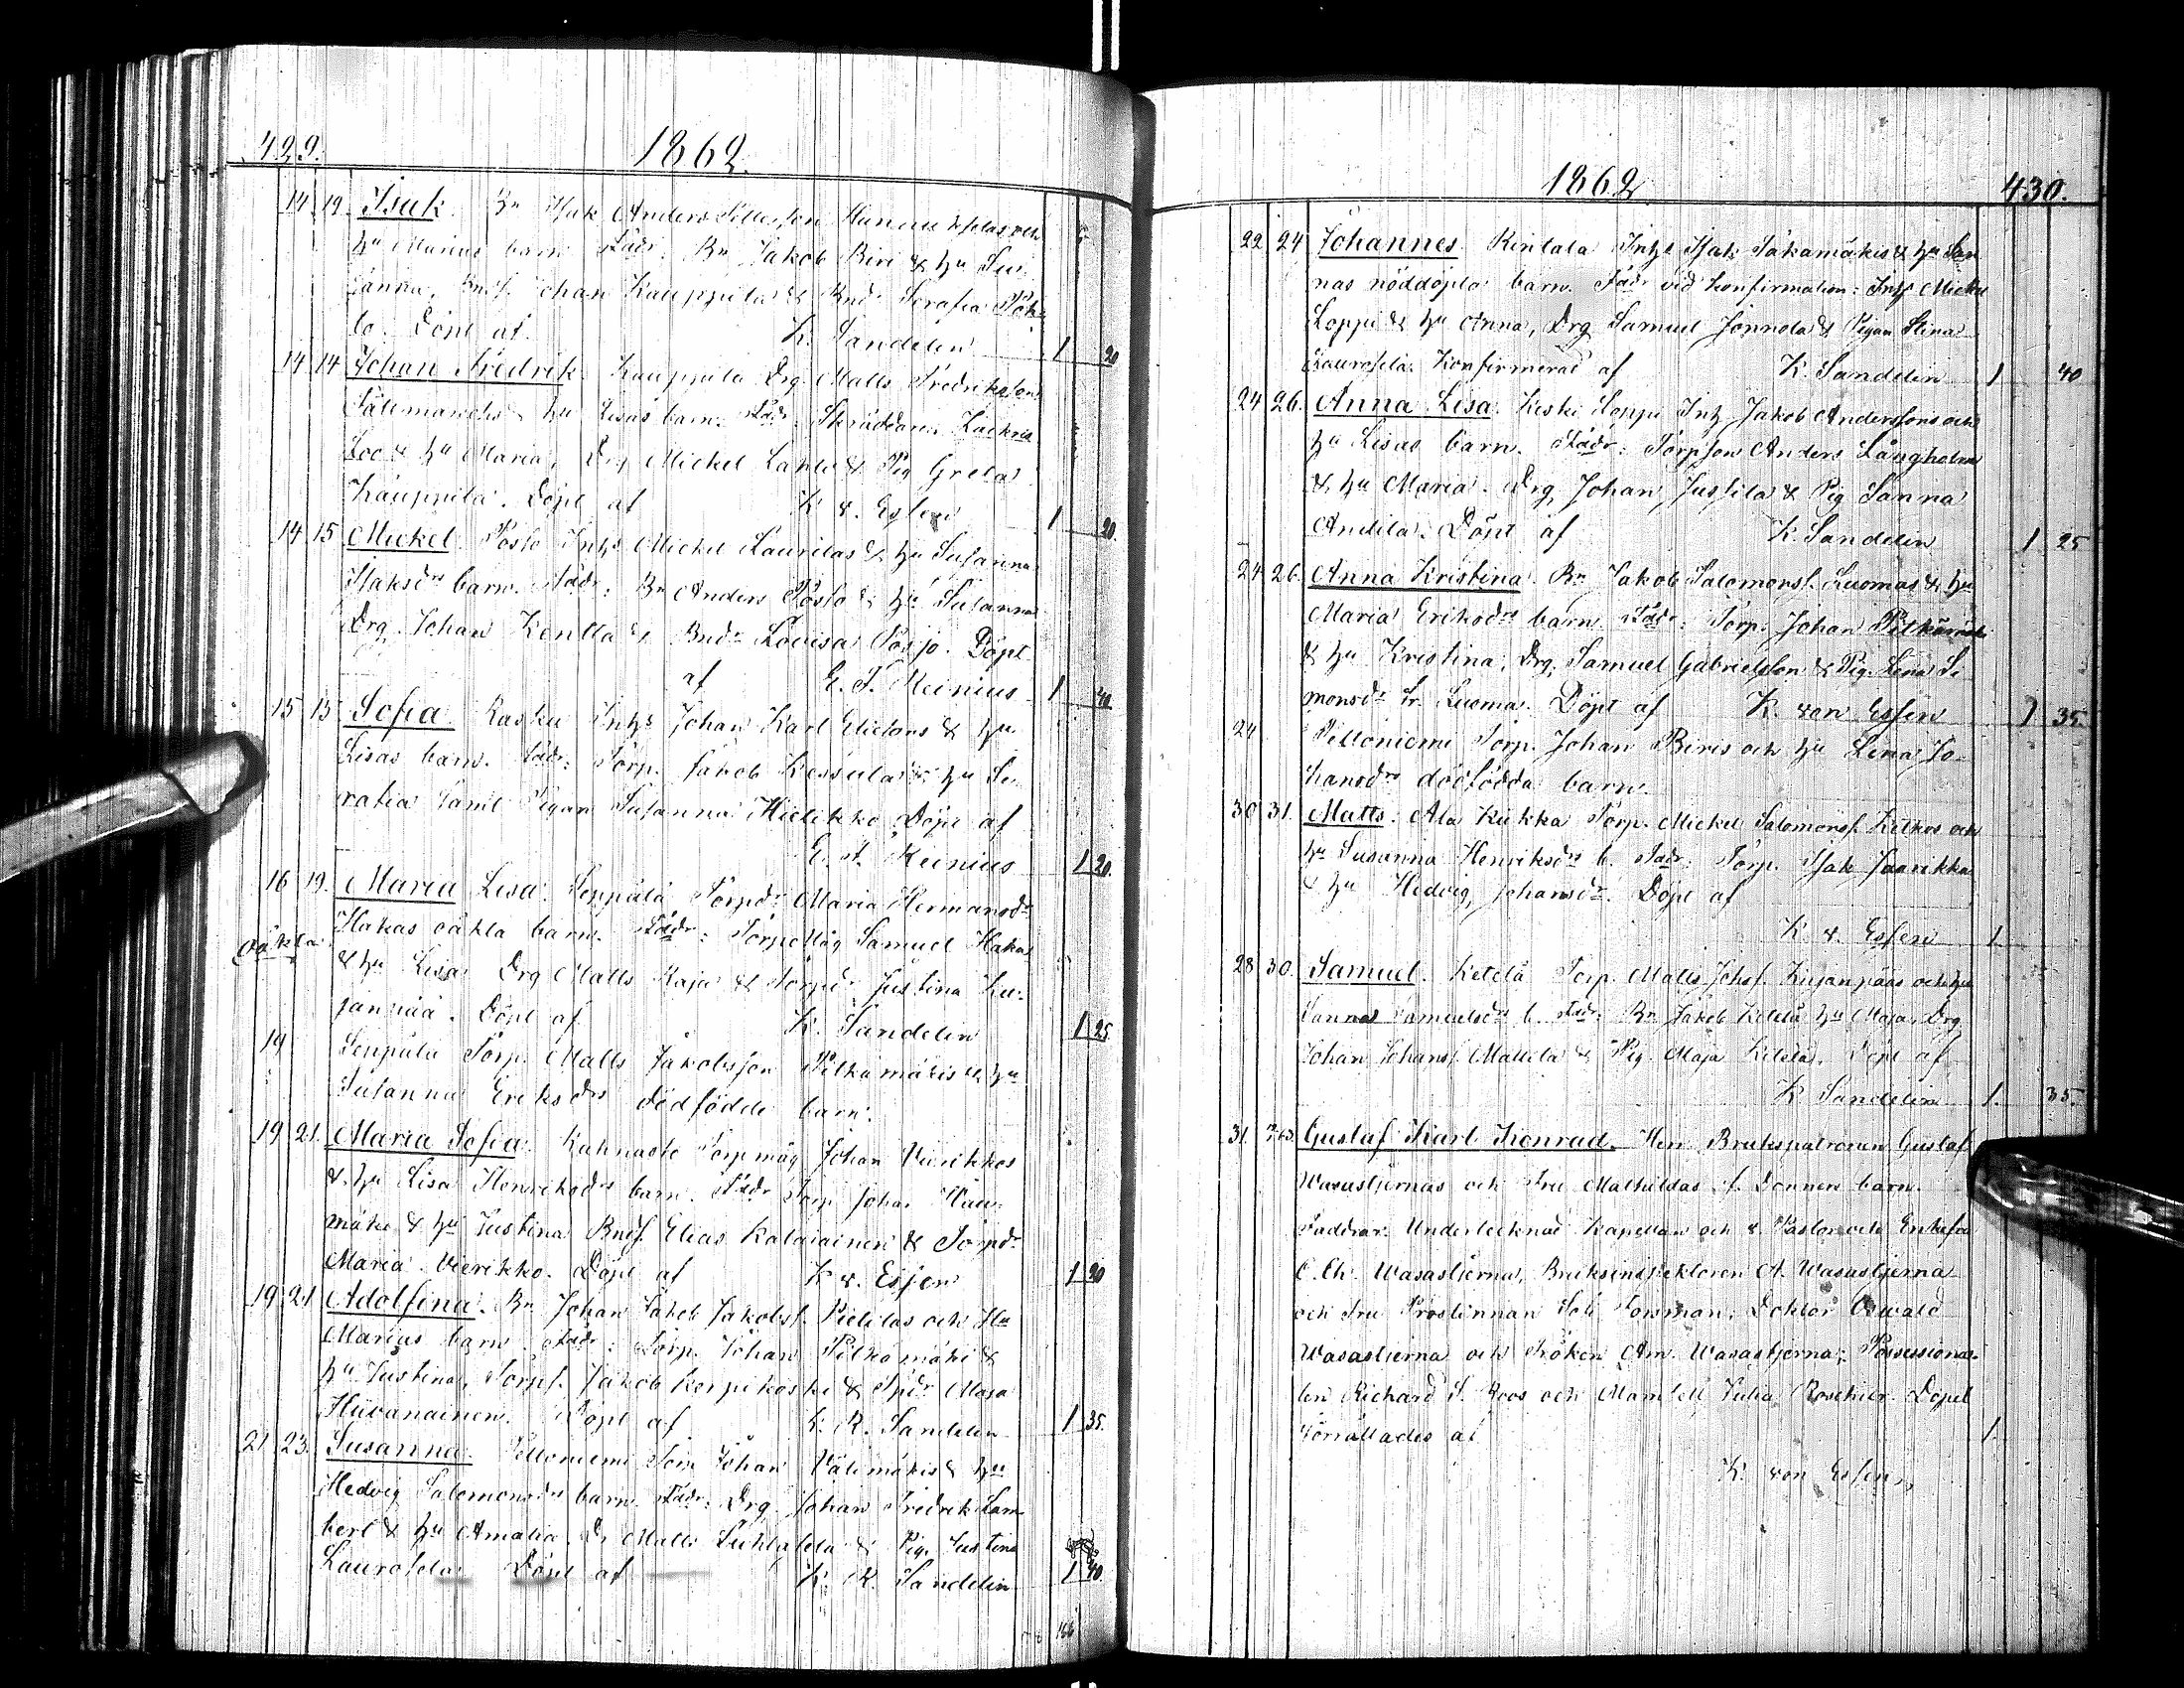 429.
1862.
14 19 Isak. Bn Isak Andersson
hu Marias barn. Fadr: Bn Jakob Biri & hu Su-
sanna, Bndf. Johan Kauppila & Bndr Serafia
lo. Döpt af K. Sandelin 1 20
14 14 Johan Fredrik. Kauppila Drg. Matts Fredriksson
& hu Lisas barn. Fadr: Skräddaren Zackris
Loo & hu Maria, Drg Mickel Lahti & Pig Greta
Kauppila. Döpt af K v. Essen 1 20.
14 15 Mickel. Posto Inhs Mickel Laurilas & hu Susanna
Isaksdrs barn. Fadr: Bn Anders Posto & hu Susanna
Drg. Johan Kentta & Bndr Lovisa Döpt
af E. T. Reinius 1 40
15 15 Sofia. Rasku Inhs Johan Karl & hu
Lisas barn. Fadr: Torp. Jakob Kessula & hu Se-
rafia samt Pigan Susanna Hietikko. Döpt af
E. T. Reinius 1 20.
16 19. Maria Lisa. Seppälä Torpdr Maria Hermansdr
oäkta
Hakas oäkta barn. Fadr: Torpmåg Samuel Haka
& hu Lisa Drg Matts Kaja & Torpdr Justina Ku-
janpää. Döpt af K. Sandelin 1 25
19 Seppälä Torp. Matts Jakobsson Pitkämäkis & hu
Susanna Eriksdrs dödfödde barn.
19 21. Maria Sofia. Torpmåg Johan Vierikkos
& hu Lisa Henriksdrs barn. Fadr Torp Johan
mäki & hu Justina Bndf. Elias Kalaiainen & Torpdr
Maria Vierikko. Döpt af K v. Essen 1 20
19 21 Adolfina. Bn Johan Jakob Jakobsf. Pietilas och Hu
Marias barn. Fadr: Torp. Johan Pitkämäki &
hu Justina, Torpf. Jakob Korpikoski & Tpdr Maja
Hiivanainen. Döpt af K. R. Sandelin 1 35.
21 23. Susanna. Peltoniemi Torp Johan Välimäkis & hu
Hedvig Salomonsdrs barn. Fadr: Drg. Johan Fredrik Lam-
bert & hu Amalia, Dr Matts & Pig. Justina
Laurosela Döpt af K. R. Sandelin 1 40.
166
1862
430.
22 24 Johannes. Rintala Inhs Isak Säkämäkis & hu San
nas nöddöpta barn. Fadr vid Konfirmation: Inhs Mickel
Loppi & hu Anna, Drg Samuel Jonnola & Pigan Stina
Laurosela. Konfirmerad af K. Sandelin 1 40
24 26. Anna Lisa. Keski Loppi Inh Jakob Anderssons och
hu Lisas barn. Fadr: Torpson Anders Långholm
& hu Maria. Drg Johan Jussila & Pig Sanna
Andila. Döpt af K. Sandelin 1 25
24 26. Anna Kristina. Bn Jakob Salomonsf. Luomas & hu
Maria Eriksdrs barn. Fadr: Torp. Johan Pitkämäki
& hu Kristina, Drg. Samuel Gabrielsson & Pig. Lena Si-
monsdr fr. Luoma. Döpt af K. von Essen 1 35
24 Peltoniemi Torp. Johan Biris och hu Lena Jo-
hansdrs dödfödda barn.
30 31. Matts. Ala Kiikka Torp. Mickel Salomonsf. Kitkos och
hu Susanna Henriksdrs b. Fadr: Torp. Isak Jaarikka
& hu Hedvig Johansdr. Döpt af
K v. Essen 1
28 30. Samuel. Ketelä Torp. Matts Johsf. Kujanpääs och hu
Sannas Samuelsdrs b. Fadr: Bn Jakob Ketelä hu Maja, Drg
Johan Johansf. Mattila & Pig. Maja Ketelä. Döpt af
K Sandelin 1. 35.
31. Gustaf Karl Konrad. Herr Brukspatronen Gustaf
Wasastjernas och Fru Mathildas f. Donner barn.
Faddrar. Undertecknad Kapellan och v. Pastor och Enkefru
C. Ch. Wasastjerna, Bruksinspektoren A. Wasastjerna
och Fru Prostinnan Forsman, Doktor Oswald
Wasastjerna och Fröken Am. Wasastjerna, Possessiona-
ten Richard S. Roos och Mamsell Julia Roschier. Döpet
förrättades af 1.
K. von Essen,